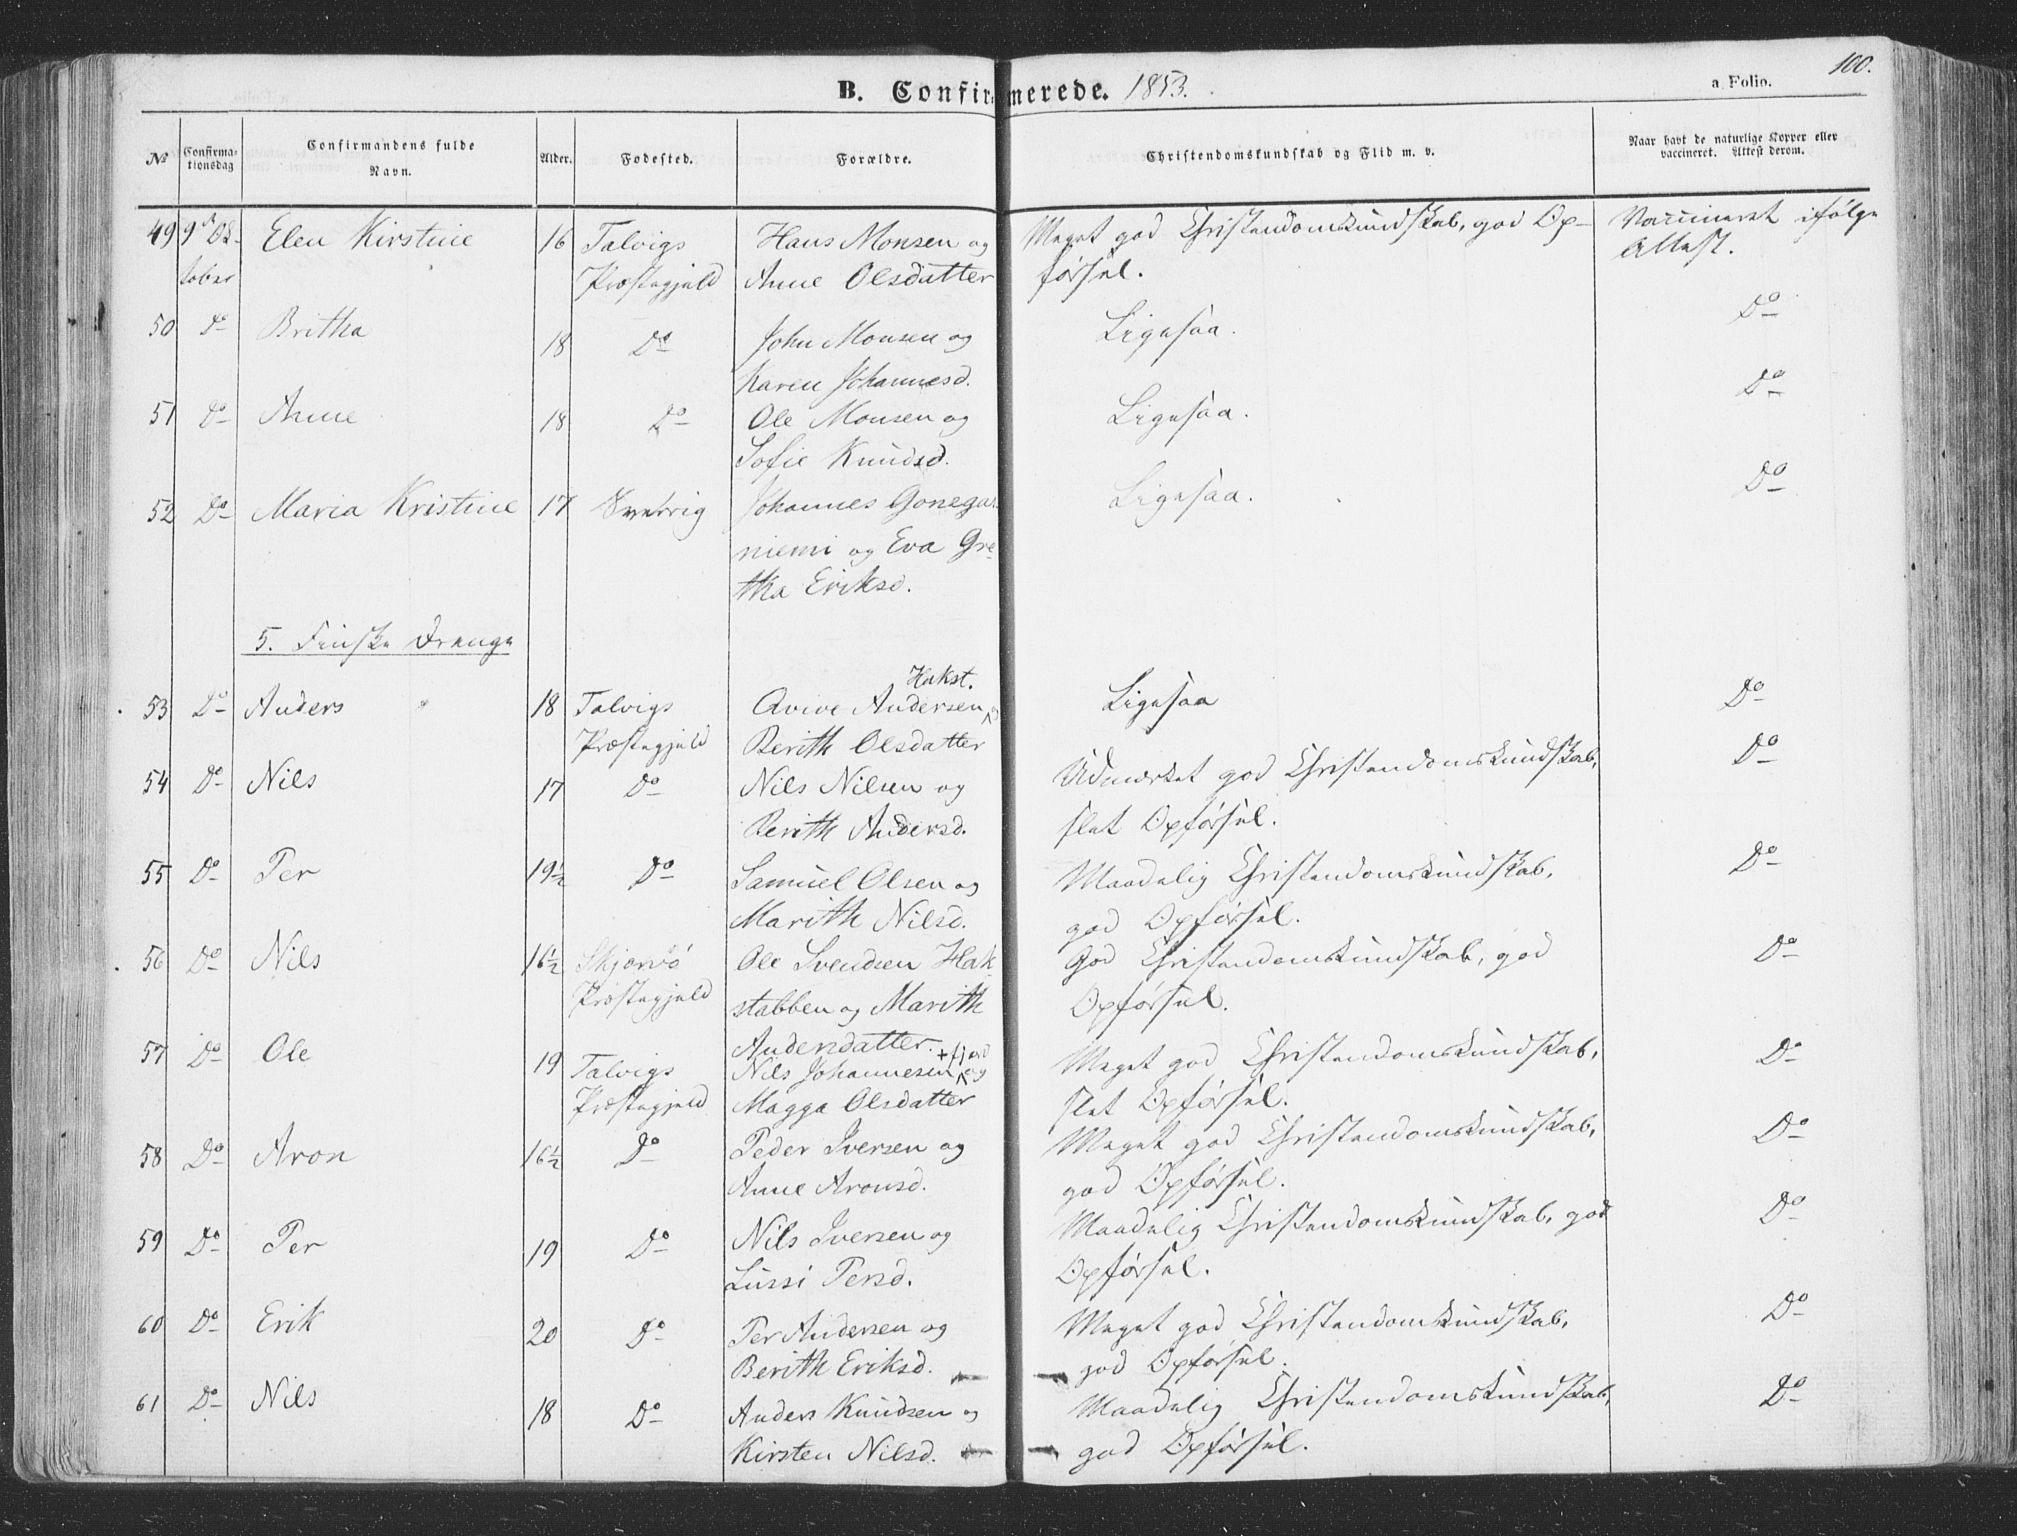 B. Confirmerede. 1853.
a Folio.
100.
No
Confirma-
tionsdag
Confirmandens fulde
Navn.
Alder.
Fødested.
Forældre.
Christendomskundskab og Flid m. v.
Naar havt de naturlige Kopper eller
vaccineret. Attest derom.
49 9d Ok- Elen Kirstine 16 Talvigs Hans Monsen og Meget god Christendomskundskab, god Op- Vaccineret ifølge
tober Præstegjeld Anne Olsdatter førsel. Attest.
50 Do Britha 18 Do John Monsen og Ligesaa. Do
Karen Johannesd.
51 Do Anne 18 Do Ole Monsen og Ligesaa. Do
Sofie Knudsd.
52 Do Maria Kristine 17 Sverrig Johannes Gonega- Ligesaa. Do
niemi og Eva Gre-
tha Eriksd.
5. Finske Drenge
Hakst.
53 Do Anders 18 Talvigs Avive Andersen og Ligesaa Do
Præstegjeld Berith Olsdatter
54 Do Nils 17 Do Nils Nilsen og Udmærket god Christendomskundskab, Do
Berith Andersd. slet Opførsel.
55 Do Per 19½ Do Samuel Olsen og Maadelig Christendomskundskab, Do
Marith Nilsd. god Opførsel.
56 Do Nils 16½ Skjervø Ole Svendsen Hak- God Christendomskundskab, god Do
Præstegjeld stabben og Marith Opførsel.
Andersdatter.
57 Do Ole 19 Talvigs Nils Johannesen og Meget god Christendomskundskab, Do
Præstegjeld Magga Olsdatter slet Opførsel.
58 Do Aron 16½ Do Peder Iversen og Meget god Christendomskundskab, Do
Anne Aronsd. god Opførsel.
59 Do Per 19 Do Nils Iversen og Maadelig Christendomskundskab, god Do
Lussi Persd. Opførsel.
60 Do Erik 20 Do Per Andersen og Meget god Christendomskundskab, Do
Berith Eriksd. god Opførsel.
61 Do Nils 18 Do Anders Knudsen og Maadelig Christendomskundskab, Do
Kirsten Nilsd. god Opførsel.